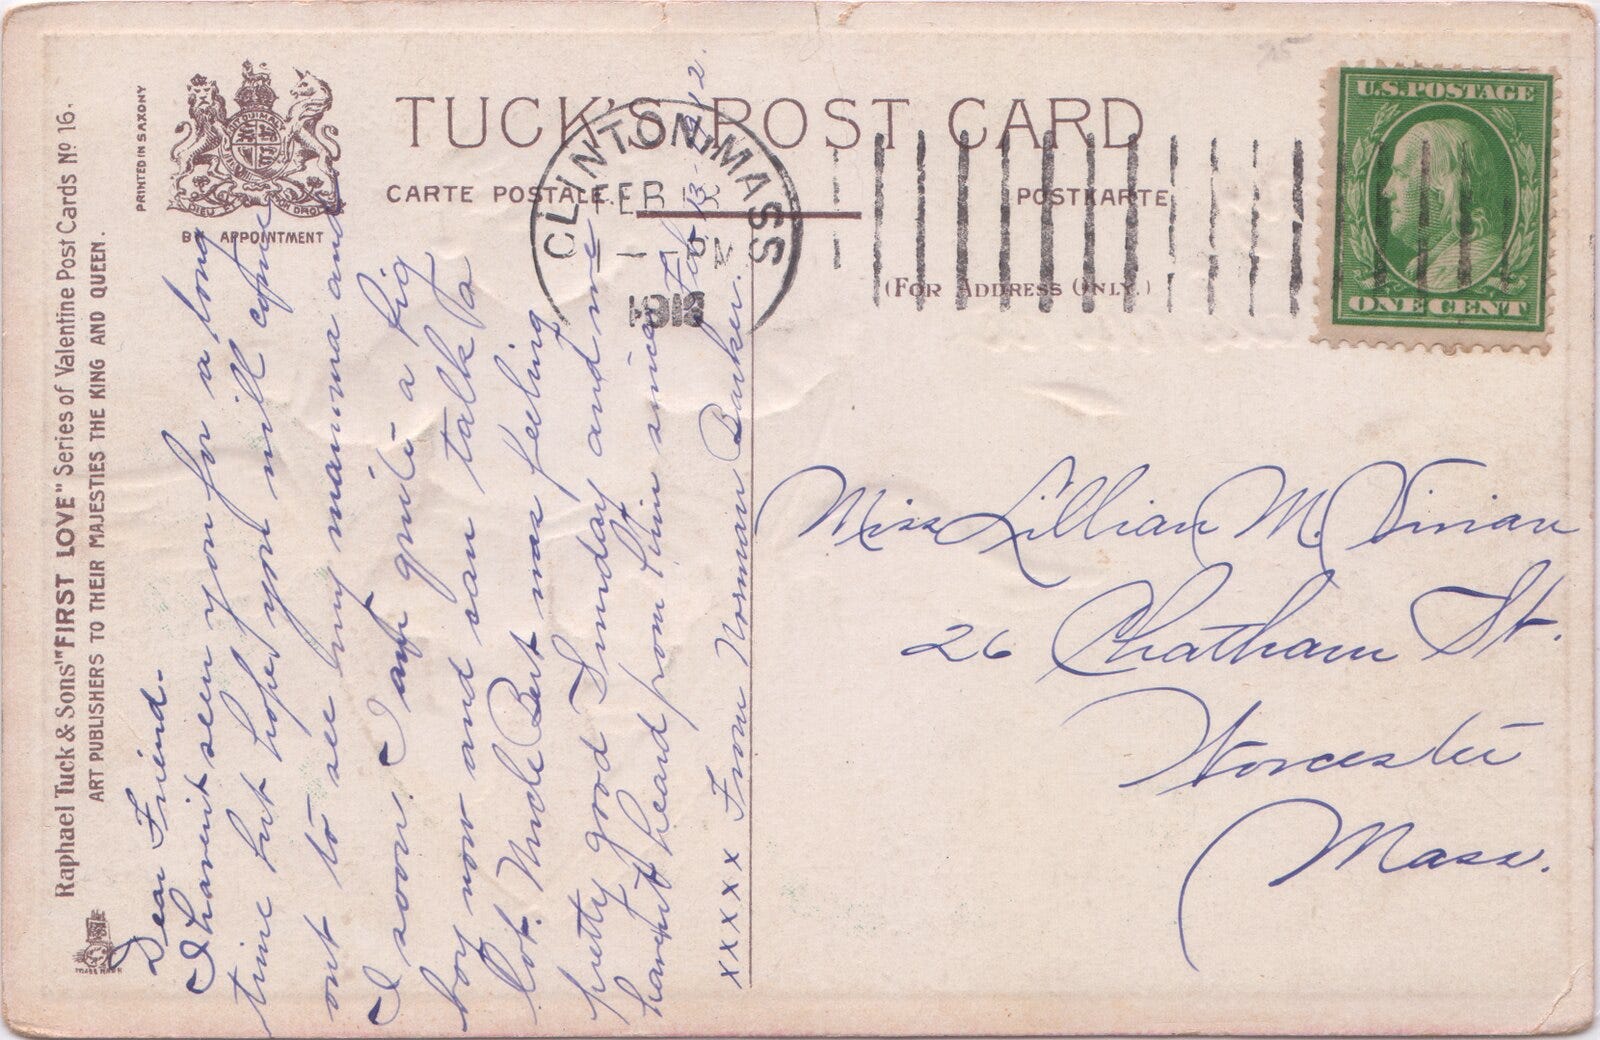 TUCK'S POST CARD
CARTE POSTALE.
POSTKARTE
(FOR ADDRESS ONLY.)
PRINTED IN SAXONY
DIEU ET MON DROIT
BY APPOINTMENT
Raphael Tuck & Sons' "FIRST LOVE" Series of Valentine Post Cards No 16.
ART PUBLISHERS TO THEIR MAJESTIES THE KING AND QUEEN.
TRADE MARK
CLINTON, MASS
FEB 13
1 PM
U.S. POSTAGE
ONE CENT
Feb. 13-1912.
Dear Friend.
I havent seen you for a long
time but hope you will come
out to see my mamma and
I soon. I am quite a big
boy now and can talk a
lot. Uncle Bert was feeling
pretty good Sunday and we
havent heard from him since
xxxxx From Norman Barker.
Miss Lillian M. Vivian
26 Chatham St.
Worcester
Mass.